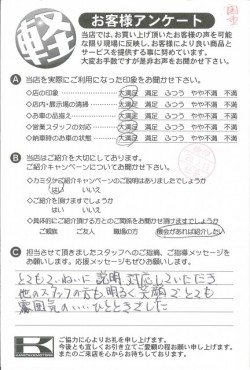 軽
お客様アンケート
当店では、お買い上げ頂いたお客様の声を可能
な限り現場に反映し、お客様により良い商品と
サービスを提供する事に努めています。
大変お手数ですが是非お声をお聞かせ下さい。
A 当店を実際にご利用になった印象をお聞かせ下さい。
◇店の印象 大満足 満足 ふつう やや不満 不満
◇店内・展示場の清掃 大満足 満足 ふつう やや不満 不満
◇お車の品揃え 大満足 満足 ふつう やや不満 不満
◇営業スタッフの対応 大満足 満足 ふつう やや不満 不満
◇納車時のお車の状態 大満足 満足 ふつう やや不満 不満
B 当店はご紹介を大切にしております。
ご紹介キャンペーンについてお聞かせ下さい。
◇カミタからご紹介キャンペーンのご説明はありましたでしょうか
はい いいえ
◇ご紹介を頂けますでしょうか
はい いいえ
◇具体的にご紹介頂ける方とのご関係をお聞かせ頂けますでしょうか
ご親族 ご友人 職場の方 機会があれば紹介したい
C 担当させて頂きましたスタッフへのご指摘、ご指導メッセージを
お願いします。応援メッセージもぜひお願いします。
とてもていねいに説明対応していただき
他のスタッフの方も明るく笑顔でとても
雰囲気のいいひとときでした
K
ご協力に心よりお礼を申し上げます。
今後とも宜しくお引き立てご愛顧の程お願い申し上げます。
またのご来店を心からお待ちしております。